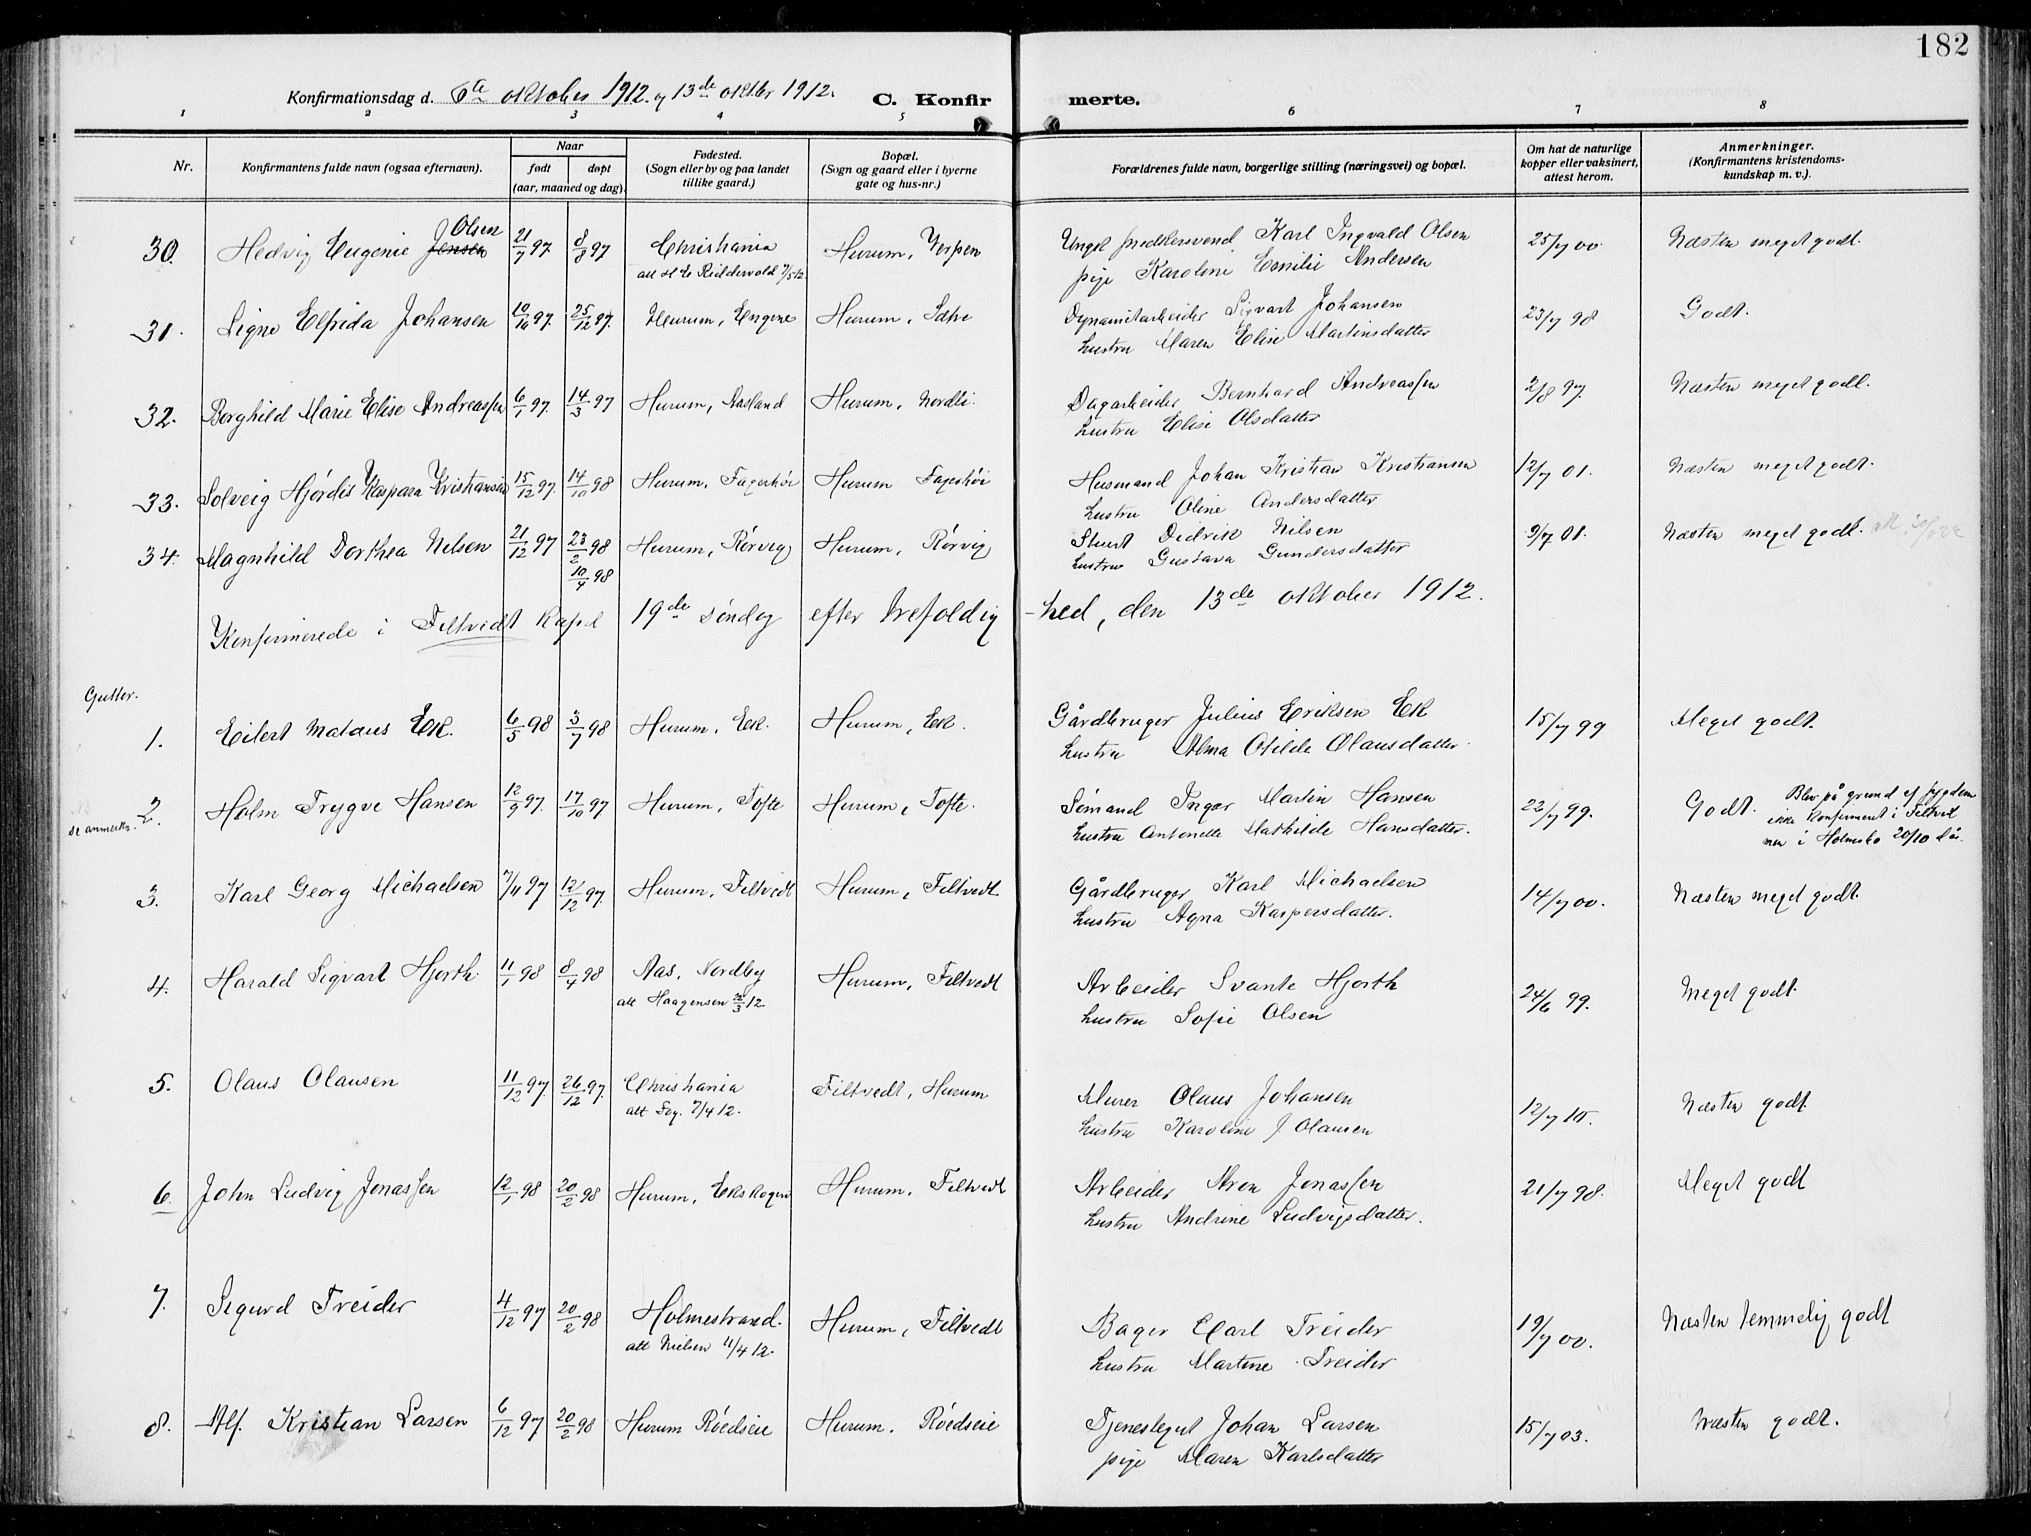 182
Konfirmationsdag d. 6te oktober 1912 og 13de oktbr 1912. C. Konfirmerte.
1 2 3 4 5 6 7 8
Nr. Konfirmantens fulde navn (ogsaa efternavn). Naar født døpt (aar, maaned og dag). Fødested. (Sogn eller by og paa landet tillike gaard.) Bopæl. (Sogn og gaard eller i byerne gate og hus-nr.) Forældrenes fulde navn, borgerlige stilling (næringsvei) og bopæl. Om hat de naturlige kopper eller vaksinert, attest herom. Anmerkninger. (Konfirmantens kristendoms-kundskap m. v.).
30. Hedvig Eugenie Jensen Olsen 21/7 97 8/8 97 Christiania Hurum, Verpen Ungk. Karl Ingvald Olsen 25/7 00. Næsten meget godt.
pige Karoline Emilie Andersen
31. Signe Elfrida Johansen 10/10 97. 25/12 97. Hurum, Engene Hurum, Sætre Dynamitarbeider Sigvart Johansen 23/7 98 Godt.
hustru Maren Elise Martinsdatter
32. Borghild Marie Elise Andreassen 6/1 97. 14/3 97 Hurum, Aasland Hurum, Nordli. Dagarbeider Bernhard Andreassen 2/8 97. Næsten meget godt.
hustru Elise Olsdatter
33. Solveig Hjørdis Kaspara Kristiansen 15/12 97. 14/10 98 Hurum, Fagerhøi Hurum Fagerhøi Husmand Johan Kristian Kristiansen 12/7 01. Næsten meget godt.
hustru Oline Andersdatter
34. Magnhild Dorthea Nilsen 21/12 97 23/2 98 Hurum, Rørvig Hurum, Rørvig Stuert Didrik Nilsen 9/7 01. Næsten meget godt.
10/4 98 hustru Gustava Gundersdatter
Konfirmerede i Filtvedt Kapel 19de søndag efter trefoldighed, den 13de oktober 1912.
Gutter.
1. Eilert Mataus Ek. 6/5 98 3/7 98 Hurum, Ek. Hurum, Ek. Gårdbruger Julius Eriksen Ek 15/7 99 Meget godt.
hustru Alma Otilde Olausdatter.
2. Holm Trygve Hansen 12/9 97. 17/10 97 Hurum, Tofte Hurum, Tofte. Sømand Ingar Martin Hansen 22/7 99. Godt. Blev på grund af sygdom
se anmerkn. hustru Antonette Mathilde Hansdatter. ikke konfirmert i Filtvet
men i Holmsbo 20/10 d.å.
3. Karl Georg Michaelsen 7/11 97 12/12 97. Hurum, Filtvedt Hurum, Filtvedt Gårdbruger Karl Michaelsen 14/7 00. Næsten meget godt.
hustru Agna Kaspersdatter.
4. Harald Sigvart Hjorth. 11/1 98 8/4 98 Aas, Nordby Hurum, Filtvedt Arbeider Svante Hjorth 24/6 99. Meget godt.
att Haagensen hustru Sofie Olsen
5. Olaus Olausen 11/12 97. 26/12 97. Christiania Filtvedt, Hurum Murer Olaus Johansen 12/7 10. Næsten godt.
att Fog. 7/4 12. hustru Karoline J. Olausen
6. John Ludvig Jonassen 12/1 98 20/2 98 Hurum, Ekskogen Hurum, Filtvedt Arbeider Aron Jonassen 21/7 98. Meget godt
hustru Andrine Ludvigsdatter.
7. Sigurd Treider 4/12 97 20/2 98 Holmestrand. Hurum, Filtvedt Bager Carl Treider 19/7 00. Næsten temmelig godt
att Nielsen 11/4 12. hustru Martine Treider
8. Alf. Kristian Larsen 6/12 97 20/2 98 Hurum Røedseie Hurum. Røedseie Tjenestegut Johan Larsen 15/7 03. Næsten godt.
pige Maren Karlsdatter